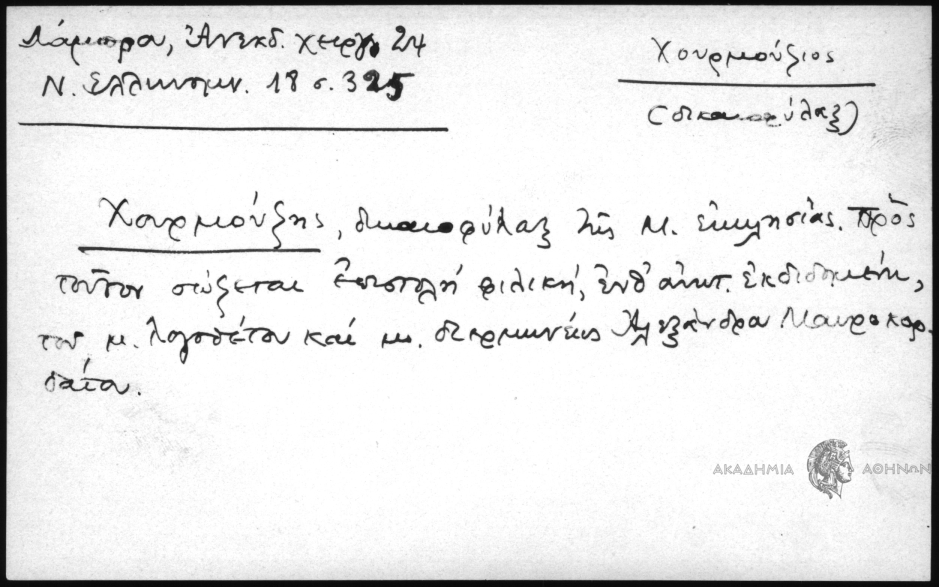 Λάμπρου, Ἀνεκδ. χειργ. 24
Ν. Ἑλληνομν. 18 σ. 325
Χουρμούζιος
(δικαιοφύλαξ)
Χουρμούζης, δικαιοφύλαξ τῆς Μ. ἐκκλησίας. Πρὸς
τοῦτον σώζεται ἐπιστολή φιλική, ἐκδιδομένη,
τοῦ μ. λογοθέτου καί μ. διερμηνέως Ἀλεξάνδρου Μαυροκορ-
δάτου.
ΑΚΑΔΗΜΙΑ ΑΘΗΝΩΝ